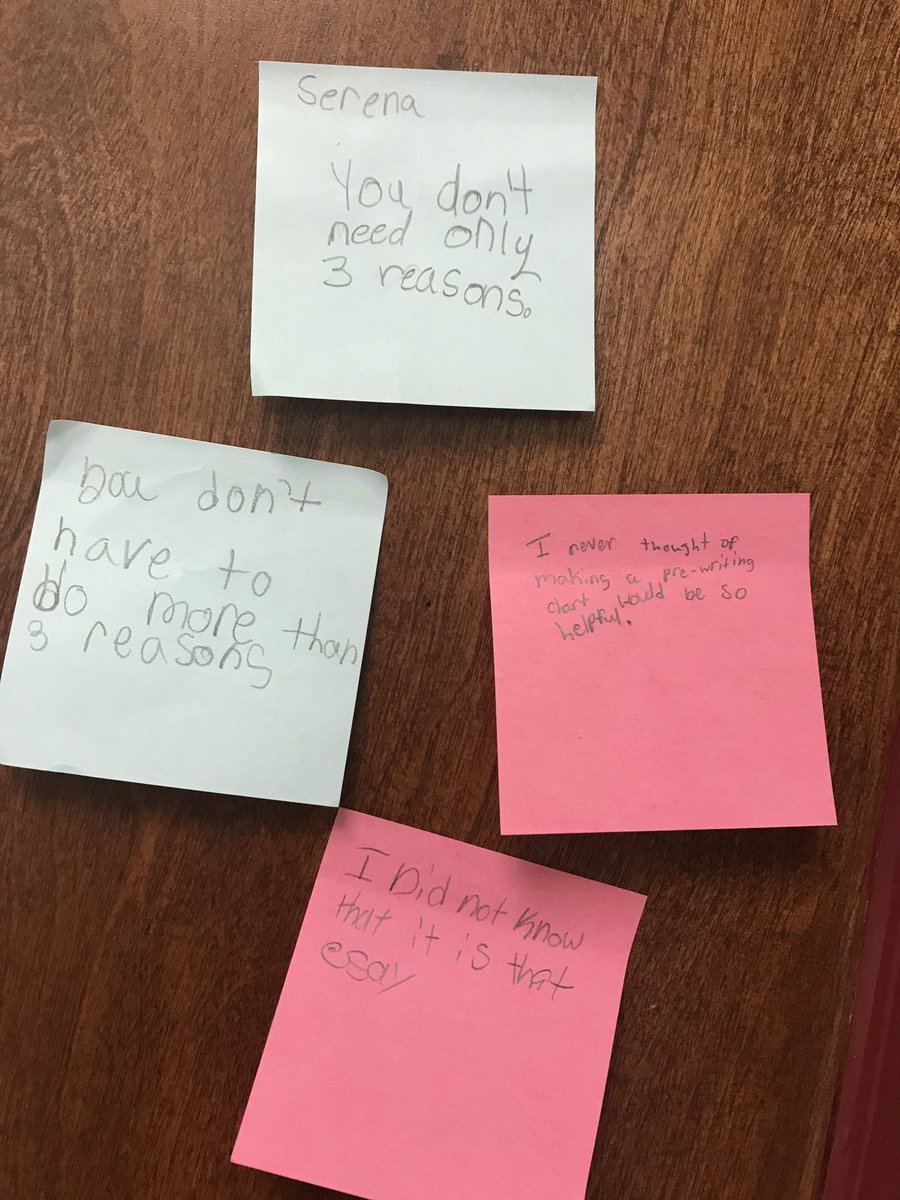 Serena
You don't
need only
3 reasons.
You don't
have to
do more than
3 reasons
I never thought of
making a pre-writing
chart would be so
helpful.
I Did not know
that it is that
essay